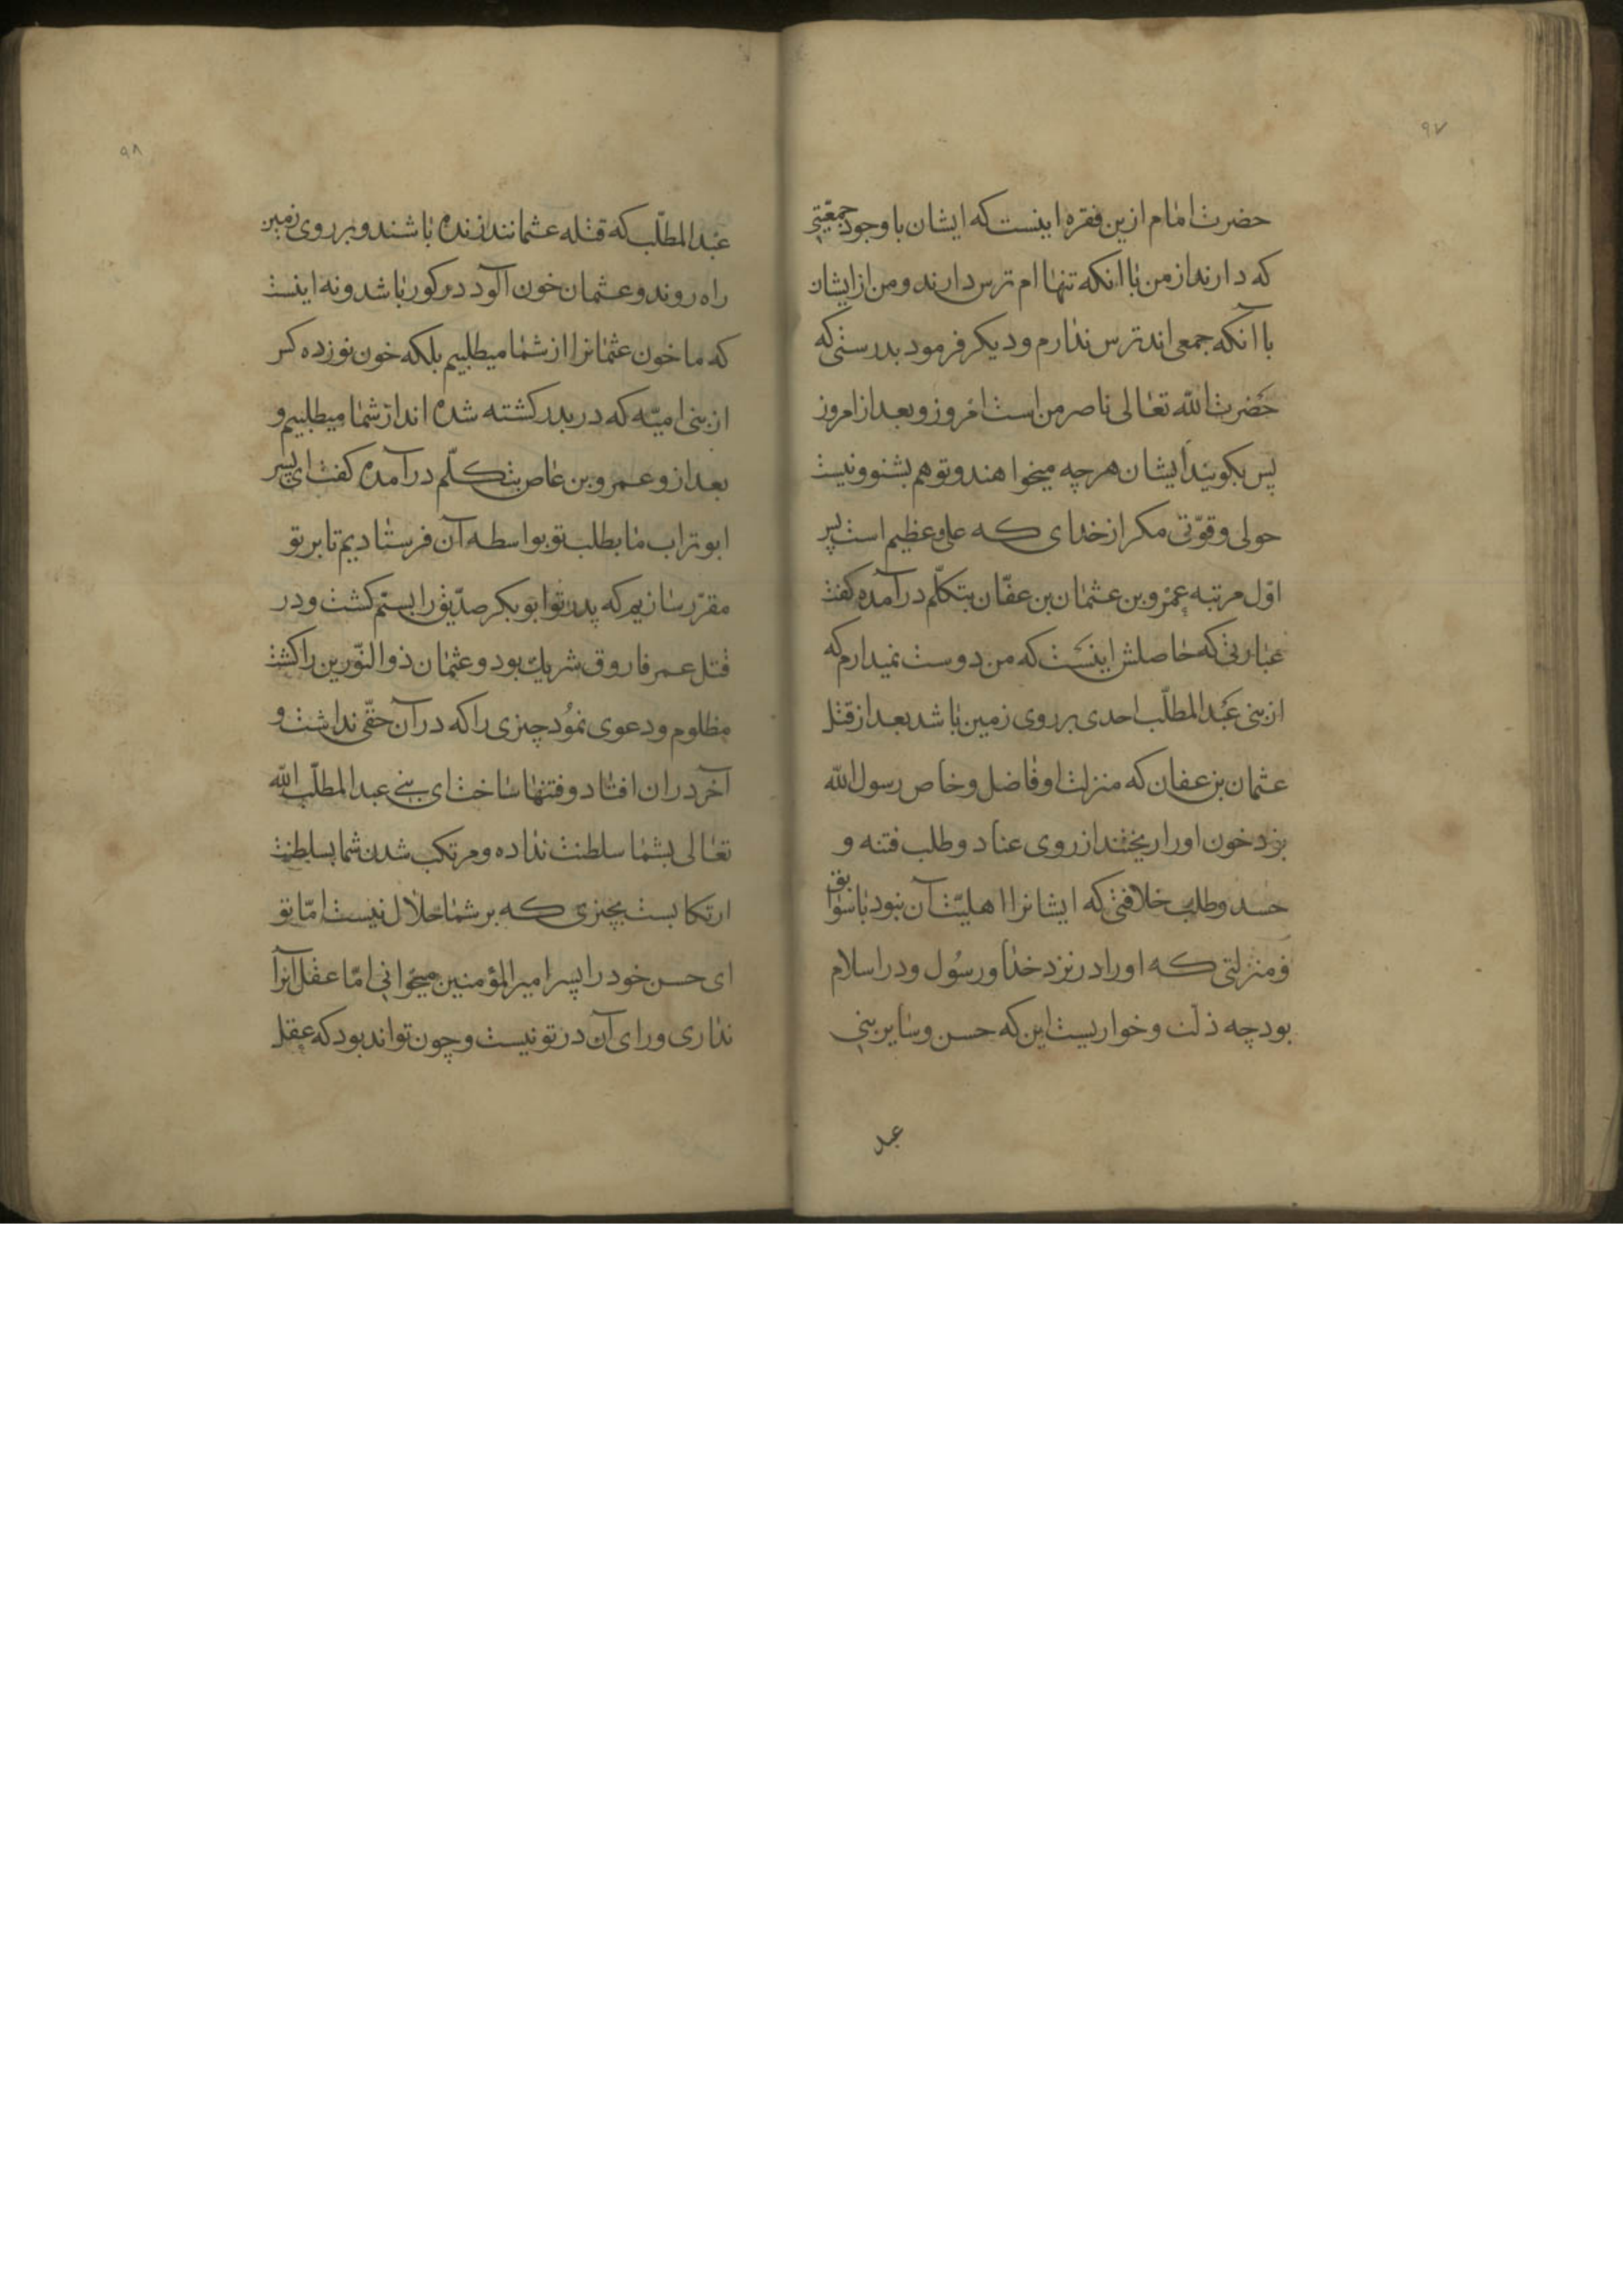 ۹۷
حضرت امام ازین فقره اینست که ایشان با وجود جمعیّتی
که دارند از من با آنکه تنها ام ترس دارند و من از ایشان
با آنکه جمعی اند ترس ندارم و دیکر فرمود بدرستی که
حضرت الله تعالی ناصر من است امروز و بعد از امروز
پس بکویند ایشان هرچه میخواهند و تو هم بشنو و نیست
حولی و قوّتی مکر از خدای که علی و عظیم است پس
اوّل مرتبه عمرو بن عثمان بن عفّان بتکلّم درآمده کفت
عبارتی که حاصلش اینست که من دوست نمیدارم که
از بنی عبد المطلّب احدی بر روی زمین باشد بعد از قتل
عثمان بن عفان که منزلت او فاضل و خاص رسول الله
بود خون او را ریختند از روی عناد و طلب فتنه و
حسد و طلب خلافتی که ایشانرا اهلیّت آن نبود با سوابق
و منزلتی که او را در نزد خدا و رسول و در اسلام
بود چه ذلّت و خواریست این که حسن و سایر بنی
عبد
۹۸
عبد المطلّب که قتله عثمانند زنده باشند و بر روی زمین
راه روند و عثمان خون آلود در کور باشد و نه اینست
که ما خون عثمانرا از شما میطلبیم بلکه خون نوزده کس
از بنی امیّه که در بدر کشته شده اند از شما میطلبیم و
بعد از و عمرو بن عاص بتکلّم درآمده کفت ای پسر
ابو تراب ما بطلب تو بواسطه آن فرستادیم تا بر تو
مقرّر سازیم که پدر تو ابو بکر صدّیق را بستم کشت و در
قتل عمر فاروق شریک بود و عثمان ذو النّورین را کشت
مظلوم و دعوی نمود چیزی را که در آن حقّی نداشت و
آخر در ان افتاد و فتنها ساخت ای بنی عبد المطلّب الله
تعالی بشما سلطنت نداده و مرتکب شدن شما بسلطنت
ارتکابست بچیزی که بر شما حلال نیست امّا تو
ای حسن خود را پسر امیر المؤمنین میخوانی امّا عقل آنرا
نداری و رای آن در تو نیست و چون تواند بود که عقل